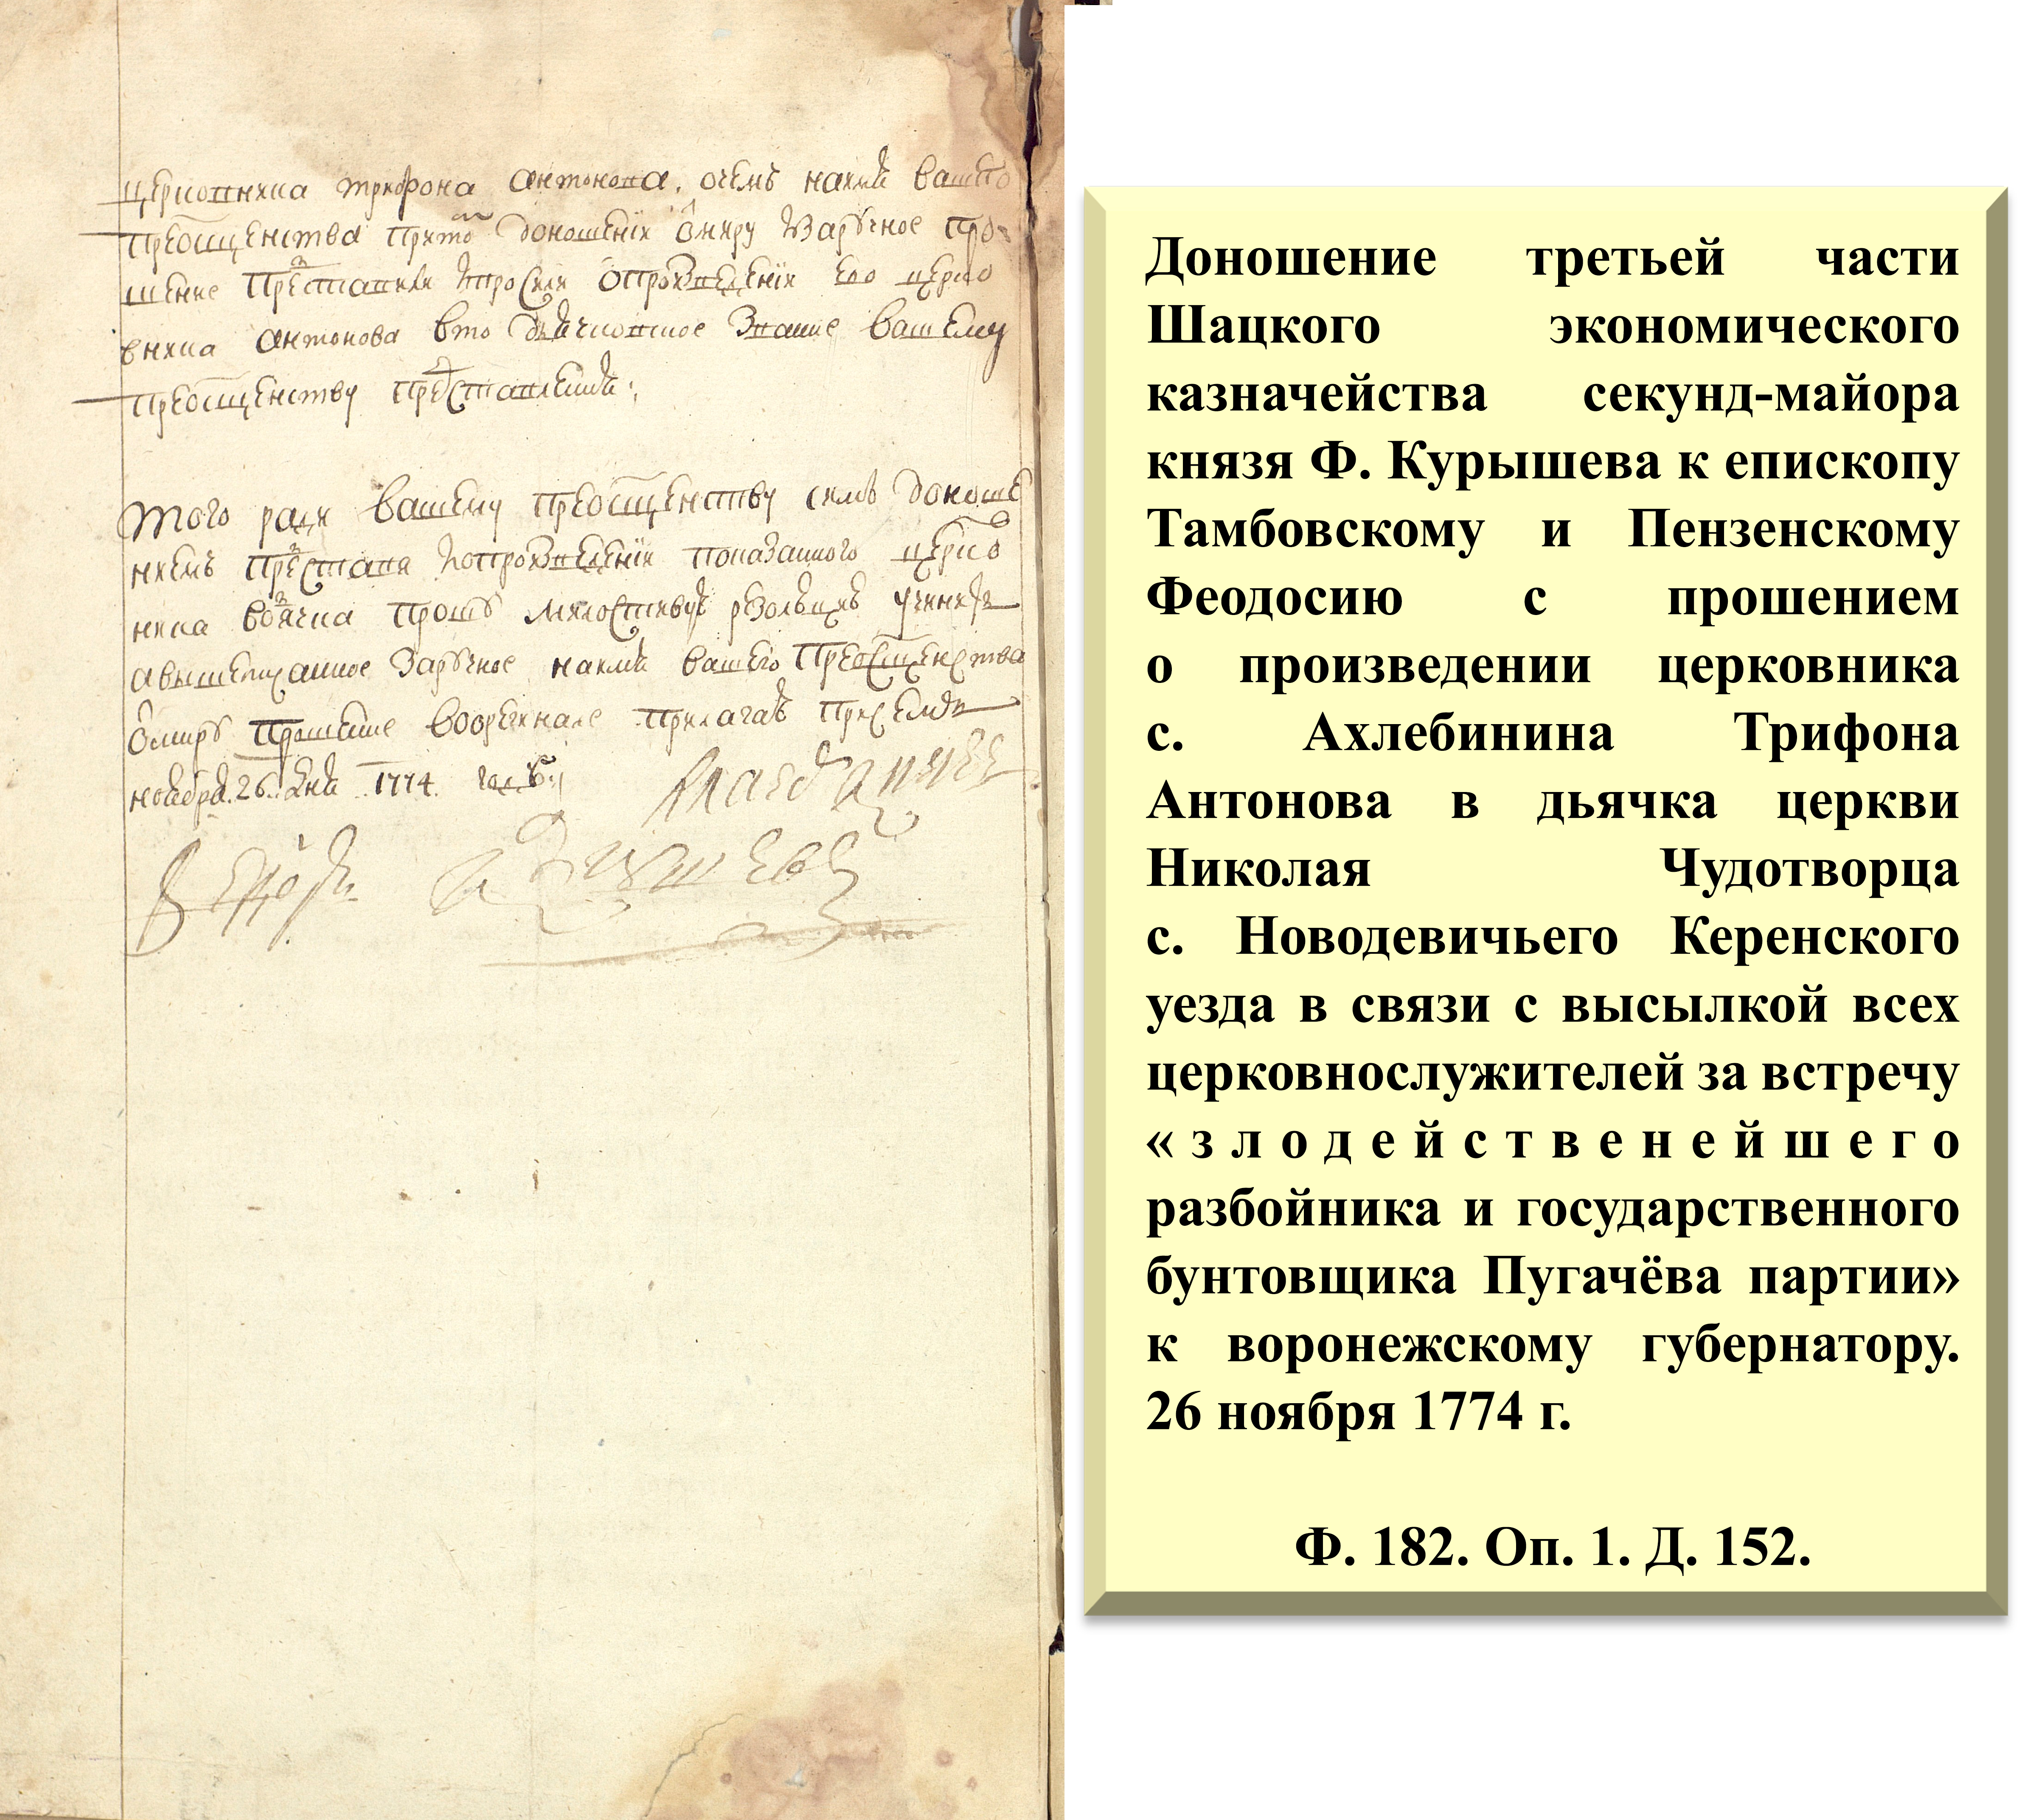 церковника трифона антонова, очемъ наимя вашего
преосщенства приᲅо доношениі ѡмиру Заручное про-
шение представили ипросили опроизведениі ево церко
вника антонова вто дьячковское Звание вашему
преосщенству представленъ:
того ради вашему преосщенству симъ доноше
ниемъ представя опроизведениі показанного церко
вника водячка прошу милостивую резолюцию учинить
авышеписанное Заручное наимя вашего преосщенства
ѡмиру прошение воорегинале прилагаю присемъ
ноября 26. дня 1774. году:
Федоръ Курышевъ
Доношение третьей части
Шацкого экономического
казначейства секунд-майора
князя Ф. Курышева к епископу
Тамбовскому и Пензенскому
Феодосию с прошением
о произведении церковника
с. Ахлебинина Трифона
Антонова в дьячка церкви
Николая Чудотворца
с. Новодевичьего Керенского
уезда в связи с высылкой всех
церковнослужителей за встречу
«злодейственейшего
разбойника и государственного
бунтовщика Пугачёва партии»
к воронежскому губернатору.
26 ноября 1774 г.
Ф. 182. Оп. 1. Д. 152.